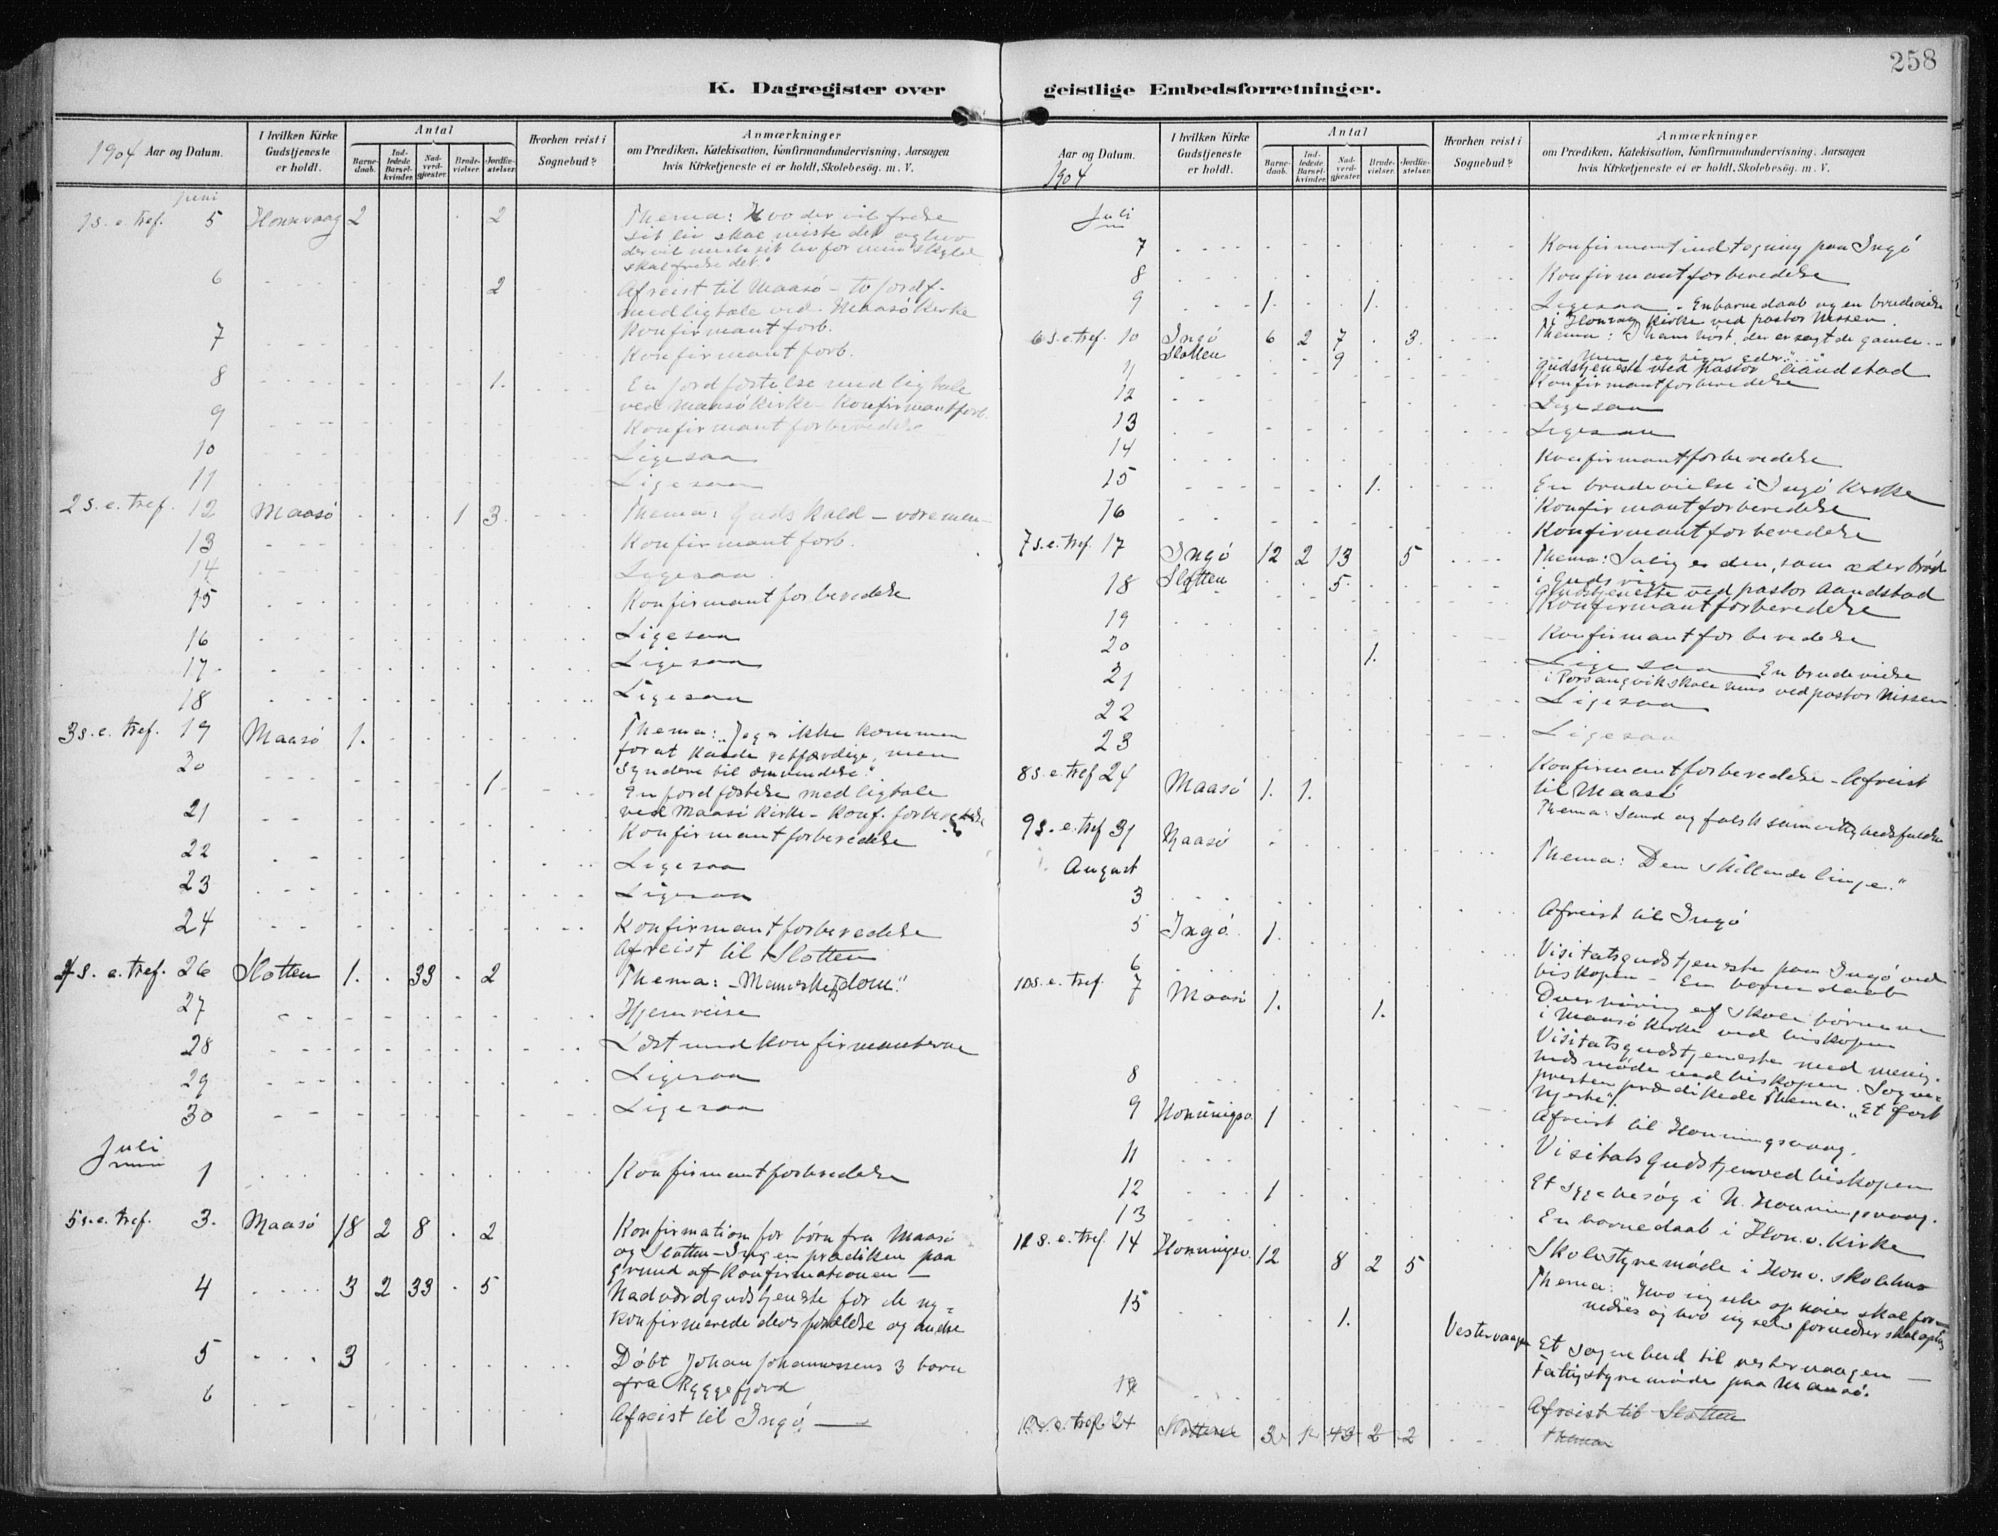 258
K. Dagregister over
geistlige Embedsforretninger.
1904 Aar og Datum.
I hvilken Kirke Gudstjeneste er holdt.
Antal
Barne-daab.
Ind-ledede Barsel-kvinder.
Nad-verd-gjester.
Brude-vielser.
Jordfæ-stelser.
Hvorhen reist i Sognebud?
Anmærkninger
om Prædiken, Katekisation, Konfirmandundervisning, Aarsagen
hvis Kirketjeneste ei er holdt, Skolebesøg. m. V.
juni
1 s. e. tref. 5 Honnvaag 2 2 Thema: Hvo der vil frelse
sit liv skal miste det og hvo
der vil miste sit liv for min skyld
skal frelse det"
6 2 Afreist til Maasö - to jordf.
med ligtale ved Maasö Kirke
Konfirmantforb.
7 Konfirmantforb.
8 1. En jordfæstelse med ligtale
ved Maasö Kirke - Konfirmantforb.
9 Konfirmantforberedelse
10 Ligesaa
11 Ligesaa
2 s. e. tref. 12 Maasö 1 3. Thema: Guds Kald -
13 Konfirmantforb.
14 Ligesaa
15 Konfirmantforberedelse
16 Ligesaa
17 Ligesaa
18 Ligesaa
3 s. e. tref. 19 Maasö 1. Thema: "Jeg er ikke kommen
for at kalde retfærdige, men
syndere til omvendelse."
20 1 En jordfæstelse med ligtale
ved Maasö Kirke - Konf. forberedelse
21 Konfirmantforberedelse
22 Ligesaa
23 Ligesaa
24 Konfirmantforberedelse
Afreist til Slotten
4 s. e. tref. 26 Slotten 1. 33 2 Thema: -Menneskedom"
27 Hjemreise
28 Læst med konfirmanterne
29 Ligesaa
30 Ligesaa
Juli
1 Konfirmantforberedelse
5 s. e. tref. 3. Maasö 18 2 8 2 Konfirmation for börn fra Maasö
og Slotten - Ingen prædiken paa
grund af Konfirmationen -
4 3 2 33 5 Nadverdgudstjeneste for de ny=
konfirmerede deres forældre og andre
5 3 Döbt Johan Johannessens 3 barn
fra Ryggefjord
6 Afreist til Ingö
Aar og Datum.
1904
I hvilken Kirke Gudstjeneste er holdt.
Antal
Barne-daab.
Ind-ledede Barsel-kvinder.
Nad-verd-gjester.
Brude-vielser.
Jordfæ-stelser.
Hvorhen reist i Sognebud?
Anmærkninger
om Prædiken, Katekisation, Konfirmandundervisning, Aarsagen
hvis Kirketjeneste ei er holdt, Skolebesøg. m. V.
Juli
7 Konfirmantindtegning paa Ingö
8 Konfirmantforberedelse
9 1. 1. Ligesaa - En barnedaab og en brudevielse
i Honvaag Kirke ved pastor Nissen.
6 s. e. tref. 10 Ingö 6 2 7 3. Thema: I have hört, der er sagt de gamle..
men jeg siger eder"...."
Slotten 9 Gudstjeneste ved Pastor Aandstad
11 Konfirmantforberedelse
12 Ligesaa
13 Ligesaa
14 Konfirmantforberedelse
15 1. En brudevielse i Ingö Kirke
16 Konfirmantforberedelse
Konfirmantforberedelse
7 s. e. tref. 17 Ingö 12 2 13 5 Thema: Salig er den, som æder bröd
i Guds rige
18 Slotten 5. Gudstjeneste ved pastor Aandstad
Konfirmantforberedelse
19
20 Konfirmantforberedelse
21 1. Ligesaa En brudevielse
i Porsangvik skolehus ved pastor Nissen
22 Ligesaa
23 Ligesaa
Konfirmantforberedelse - Afreist
til Maasö
8 s. e. tref 24 Maasö 1. 1. Thema: Sand og falsk
9 s. e. tref 31 Maasö Thema: Den skillende linje."
August
3 Afreist til Ingö
5 Ingö 1. Visitatsgudstjeneste paa Ingö ved
biskopen - En barnedaab
6 Overhöring af skolebörnene
i Maasö Kirke ved biskopen
10 s. e. tref. 7 Maasö 1. 1. Visitatsgudstjeneste med menig-
hedsmöde ved biskopen. Sogne-
presten prædikede Thema: "Et fast
hjerte".
8 Afreist til Honningsvaag.
9 Honningsv. 1 Visitatsgudstjen ved biskopen
11 Et sygebesög i N. Honningsvaag.
12 1 En barnedaab i Hon.v. Kirke
13 Skolestyremöde i Honv. skolehus
11 s. e. tref 14 Honningsv. 12 8 2 5 Thema: "Hvo sig selv ophöier skal for-
nedres og hvo sig selv fornedrer skal
15 1. Vestervaagen Et sognebud til vestervaagen -
Fattigstyremöde paa Maasö.
19 Afreist til Slotten
12 s. e. tref. 24 Slotten 3 1 43 2 2 Thema